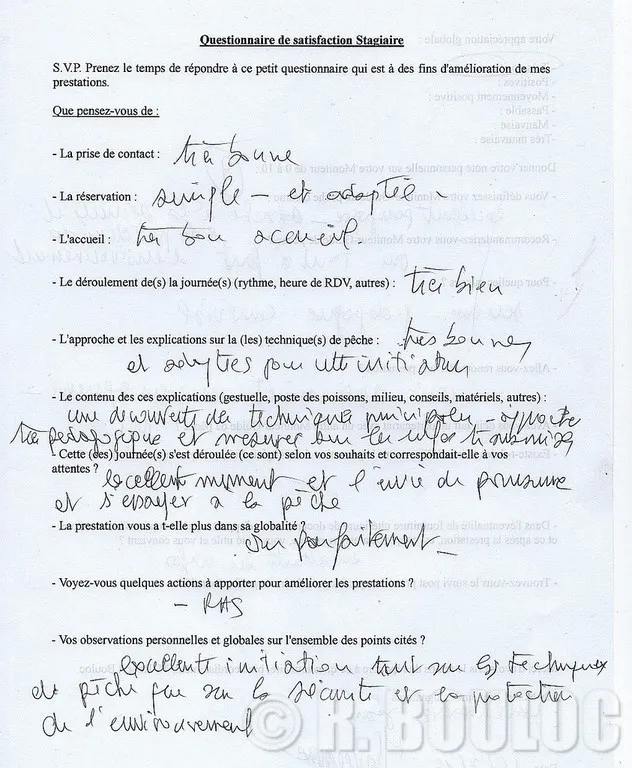 Questionnaire de satisfaction Stagiaire
S.V.P. Prenez le temps de répondre à ce petit questionnaire qui est à des fins d'amélioration de mes
prestations.
Que pensez-vous de :
- La prise de contact : très bonne
- La réservation : simple - et adaptée -
- L'accueil : très bon accueil -
- Le déroulement de(s) la journée(s) (rythme, heure de RDV, autres) : très bien
- L'approche et les explications sur la (les) technique(s) de pêche : très bonnes
et adaptées pour cette initiation
- Le contenu des ces explications (gestuelle, poste des poissons, milieu, conseils, matériels, autres) :
une découverte des techniques principales - approche
très pédagogique et mesurée sur les infos transmises
- Cette (ces) journée(s) s'est déroulée (ce sont) selon vos souhaits et correspondait-elle à vos
attentes ? excellent moment et l'envie de poursuivre
et s'essayer à la pêche
- La prestation vous a t-elle plus dans sa globalité ?
Oui parfaitement -
- Voyez-vous quelques actions à apporter pour améliorer les prestations ?
- RAS
- Vos observations personnelles et globales sur l'ensemble des points cités ?
excellente initiation tant sur les techniques
de pêche que sur la sécurité et la protection
de l'environnement
© R. BOULOC